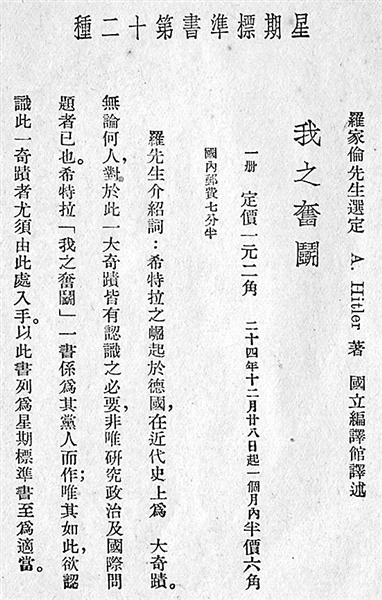 種二十第書準標期星
羅家倫先生選定 A. Hitler 著 國立編譯館譯述
我之奮鬬
一册 定價一元二角 二十四年十二月廿八日起一個月內半價六角
國內郵費七分半
羅先生介紹詞:希特拉之崛起於德國,在近代史上爲一大奇蹟。
無論何人,對於此一大奇蹟皆有認識之必要,非唯研究政治及國際問
題者已也。希特拉「我之奮鬬」一書係爲其黨人而作;唯其如此,欲認
識此一奇蹟者尤須由此處入手。以此書列爲星期標準書至爲適當。